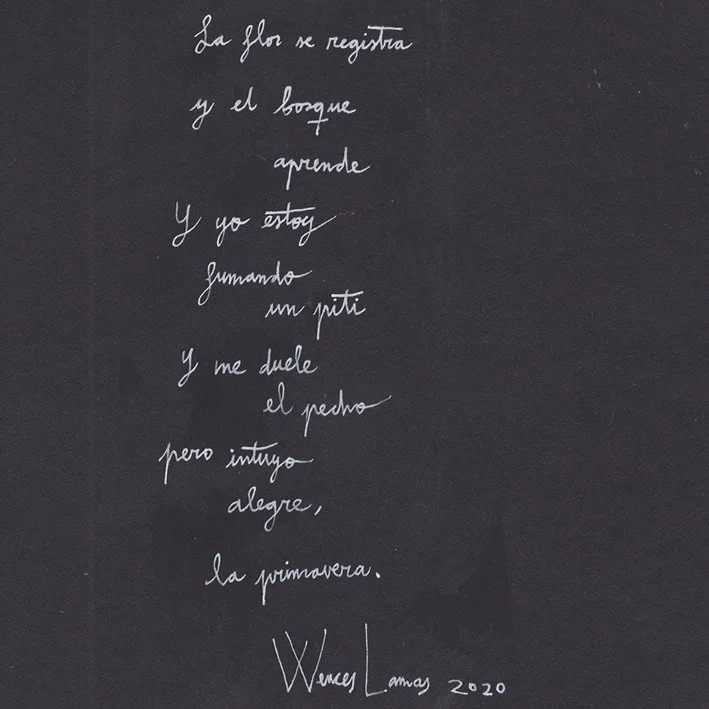 La flor se registra
y el bosque
aprende
Y yo estoy
fumando
un piti
Y me duele
el pecho
pero intuyo
alegre,
la primavera.
Wences Lamas 2020